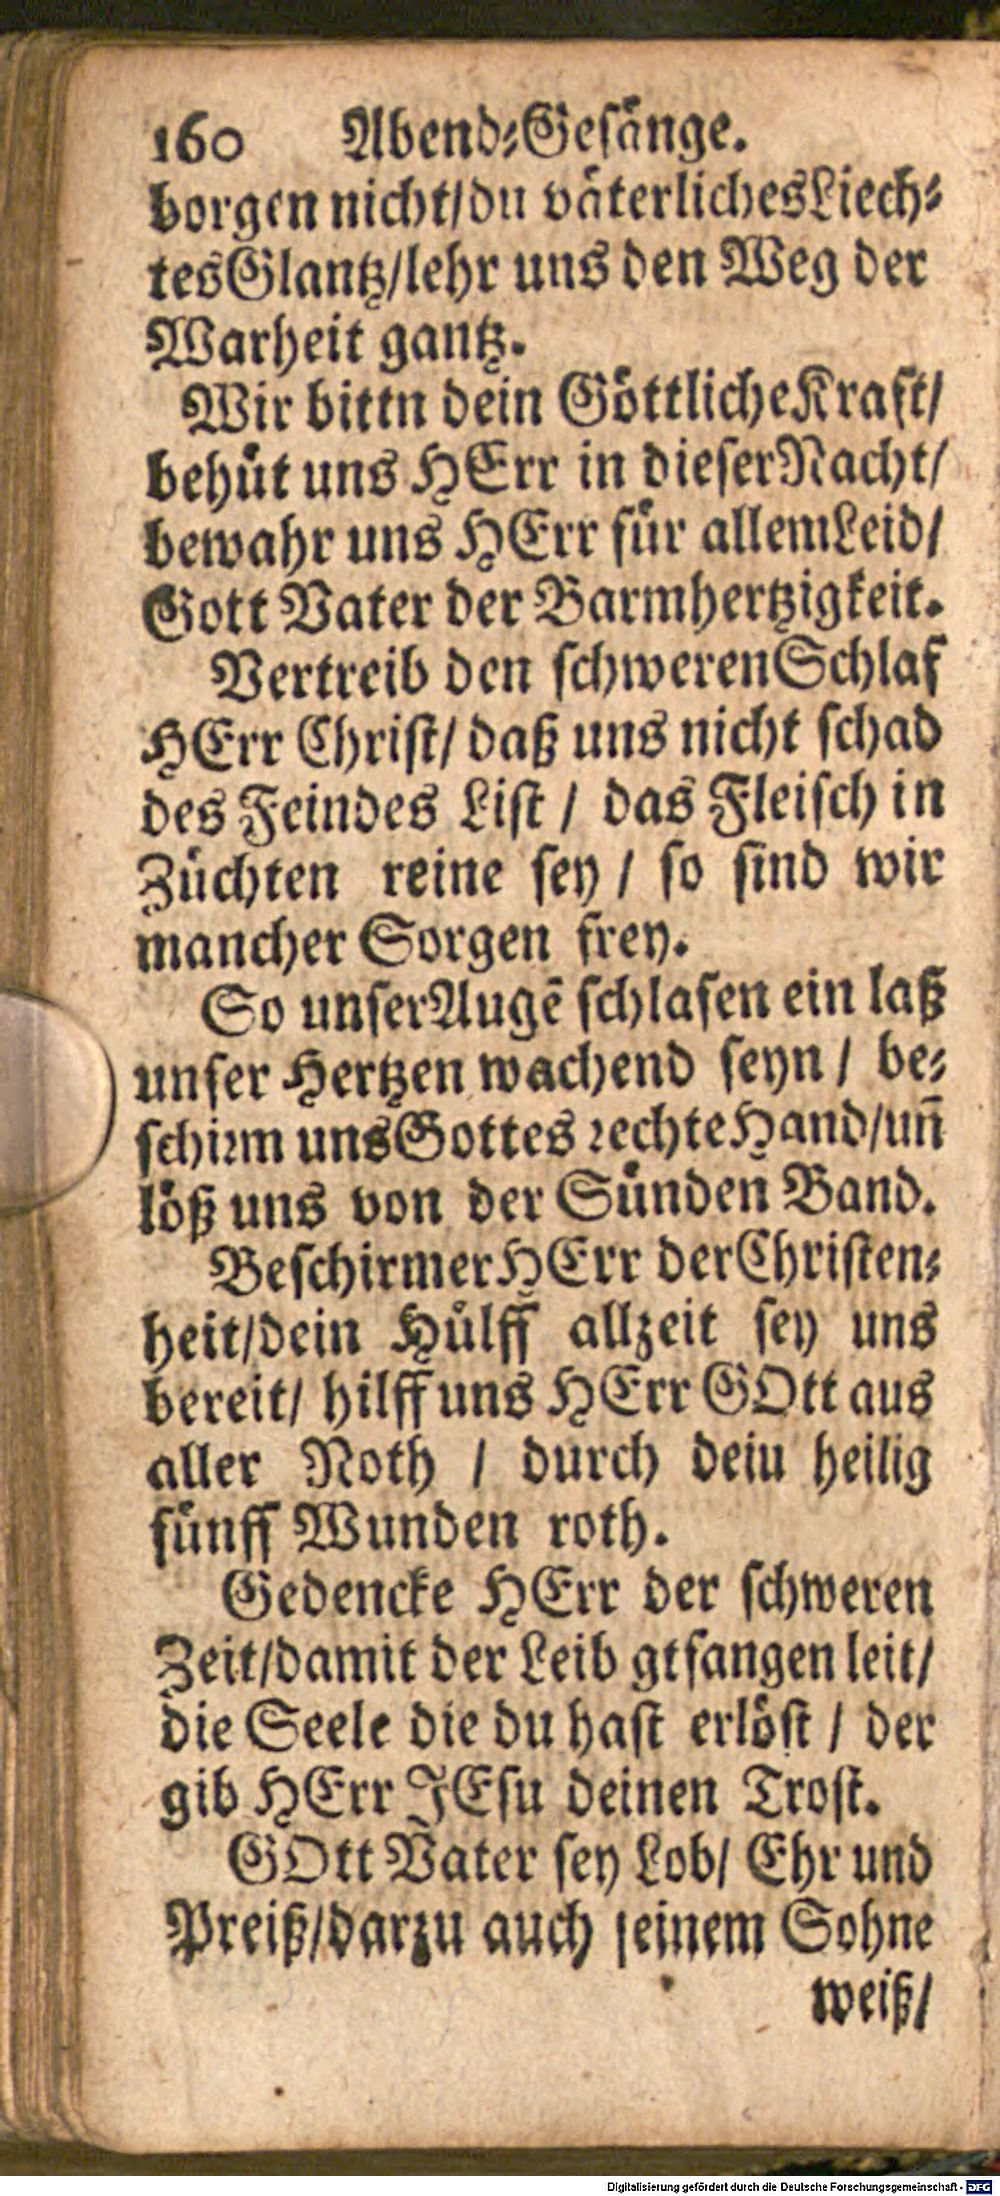 160 Abend-Gesänge.
borgen nicht/du väterliches Liech-
tes Glantz/lehr uns den Weg der
Warheit gantz.
Wir bittn dein Göttliche Kraft/
behüt uns HErr in dieser Nacht/
bewahr uns HErr für allem Leid/
Gott Vater der Barmhertzigkeit.
Vertreib den schweren Schlaf
HErr Christ/ daß uns nicht schad
des Feindes List / das Fleisch in
Züchten reine sey / so sind wir
mancher Sorgen frey.
So unser Augē schlafen ein laß
unser Hertzen wachend seyn / be-
schirm uns Gottes rechte Hand/un̄
löß uns von der Sünden Band.
Beschirmer HErr der Christen-
heit/dein Hülff allzeit sey uns
bereit/ hilff uns HErr GOtt aus
aller Noth / durch deiu heilig
fünff Wunden roth.
Gedencke HErr der schweren
Zeit/damit der Leib gtfangen leit/
die Seele die du hast erlöst / der
gib HErr JEsu deinen Trost.
GOtt Vater sey Lob/ Ehr und
Preiß/darzu auch seinem Sohne
weiß/
Digitalisierung gefördert durch die Deutsche Forschungsgemeinschaft - DFG